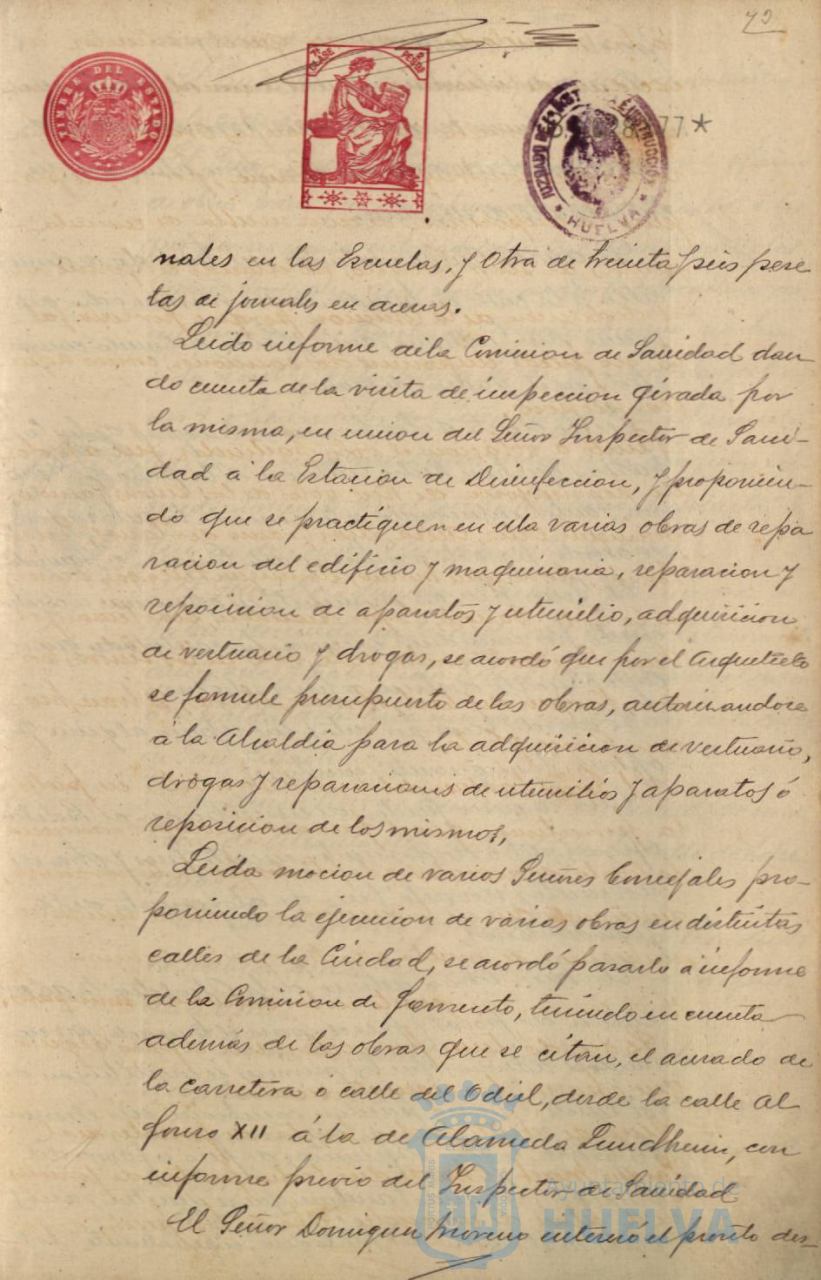 72
TIMBRE DEL ESTADO
11ª CLASE
PESOS
JUZGADO DE INSTRUCCIÓN
HUELVA
77*
nales en las Escuelas, y otra de treinta y seis pese
tas de jornales en aceras.
Leido informe de la Comision de Sanidad dan
do cuenta de la visita de inspeccion girada por
la misma, en union del Señor Inspector de Sani-
dad á la Estacion de Desinfeccion, y proponien-
do que se practiquen en ella varias obras de repa
racion del edificio y maquinaria, reparacion y
reposicion de aparatos y utensilio, adquisicion
de vestuario y drogas, se acordó que por el Arquitecto
se formule presupuesto de las obras, autorizandose
á la Alcaldia para la adquisicion de vestuario,
drogas y reparaciones de utensilios y aparatos ó
reposicion de los mismos,
Leida mocion de varios Señores Concejales pro-
poniendo la ejecucion de varias obras en distintas
calles de la Ciudad, se acordó pasarlo á informe
de la Comision de Fomento, teniendo en cuenta
además de las obras que se citan, el acerado de
la carretera ó calle del Odiel, desde la calle Al
fonso XII á la de Alameda Sundheim, con
informe previo del Inspector de Sanidad
El Señor Dominguez Moreno interesó el pronto des-
Ayuntamiento de
HUELVA